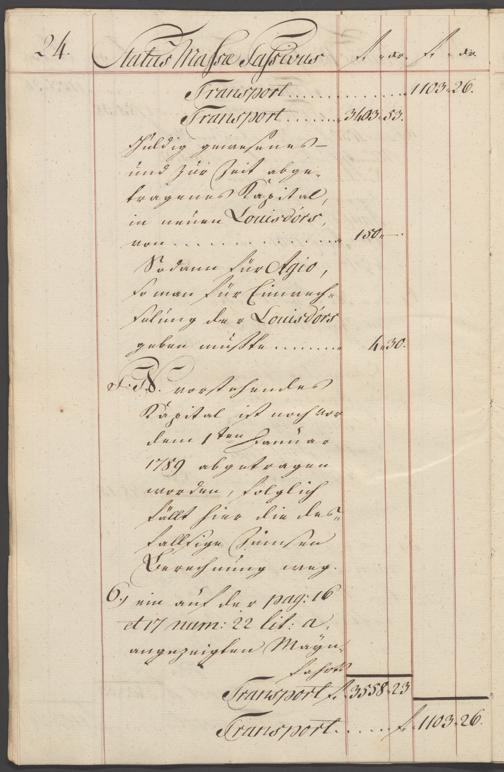 24. Status Massæ Passivus f. xr. f. xr.
Transport . . . . . . . . . . . 1103. 26.
Transport . . . . . . 3403. 53.
schuldig gewesenes
und zur Zeit abge-
tragenes Kapital,
in neuen Louisdórs,
von . . . . . . . . . . . . 150. —
Sodann für Agio,
so man für Einwech-
selung der Louisdórs
geben müßte . . . . . . . 4. 30.
NB. vorstehendes
Kapital ist noch vor
dem 1ten Januar
1789 abgetragen
worden, folglich
fällt hier die des-
fallsige Zinsen
Berechnung weg.
6.) ein auf der pag: 16
et 17 num: 22 lit: a.
angezeigten
Transport f. 3558. 23
Transport . . . . . . f. 1103. 26.